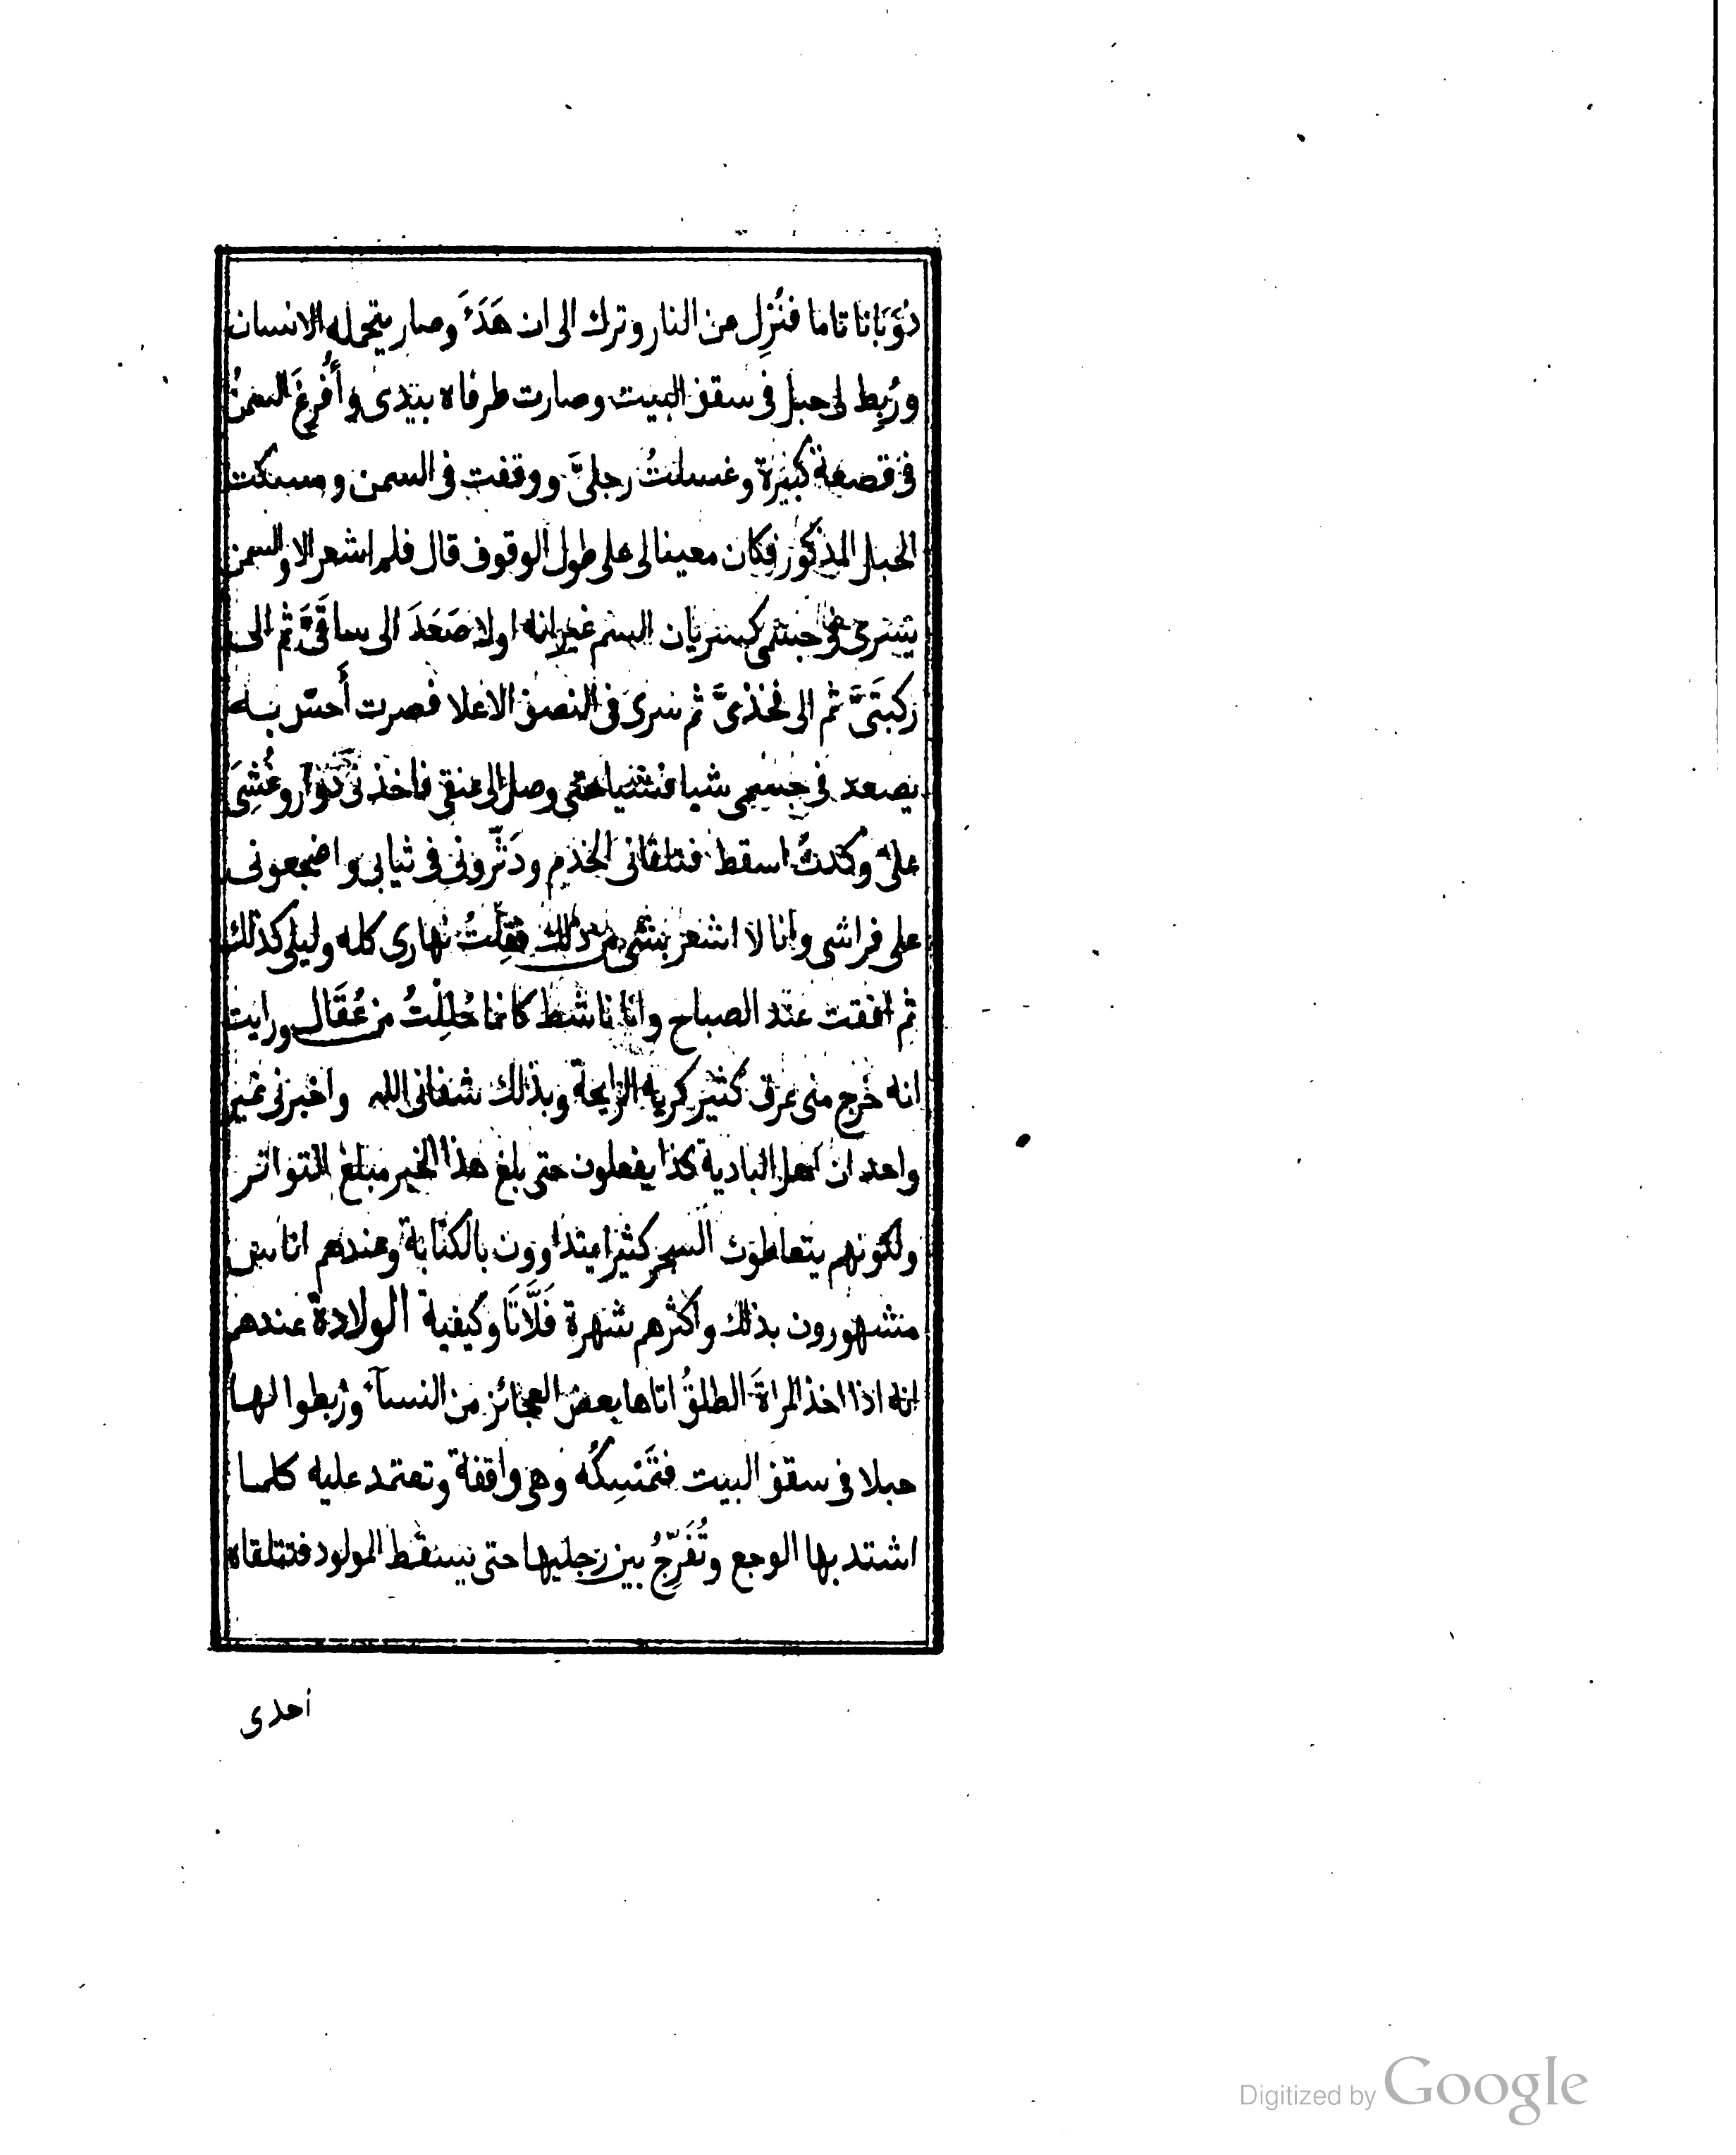 ذُوَبَانا تاما فنُزِل من النار وترك الى ان هَدَءَ وصار يتحمله الانسان
ورُبِط لى حبل فى سقف البيت وصارت طرفاه بيَدى وأُفرِغَ السمنُ
فى قصعة كبيرة وغسلتُ رجلىَّ ووقفت فى السمن ومسكت
الحبل المذكور فكان معينا لى على طول الوقوف قال فلم اشعر الا والسمن
يسرى فى جسمى كسريان السم غير انه اولا صَعَدَ الى ساقَىَّ ثم الى
ركبتَىَّ ثم الى فخذىَّ ثم سرى فى النصف الاعلا فصرت أحسّ به
يصعد فى جسمى شيا فشيا حتى وصل الى عنقى فاخذنى دُوَار وغُشِىَ
علىَّ وكدتُ اسقط فتلقانى الخدم ودَثَّرونى فى ثيابى واضجعونى
على فراشى وانا لا اشعر بشى من ذلك فقِلتُ نهارى كله وليلى كذلك
ثم افقت عند الصباح وانا ناشط كانما حُلِلتُ من عُقَال ورايت
انه خرج منى عرق كثير كريه الرايحة وبذلك شفانى الله واخبرنى غير
واحد ان اهل البادية كذا يفعلون حتى بلغ هذا الخبر مبلغ التواتر
ولكونهم يتعاطون السحر كثيرا يتداوون بالكتابة وعندهم اناس
مشهورون بذلك واكثرهم شهرة فَلَّاتَا وكيفية الولادة عندهم
انه اذا اخذ المراةَ الطلقُ اتاها بعض العجائز من النسآء وربطوا لها
حبلا فى سقف البيت فتمَسِكُه وهى واقفة وتعتمد عليه كلما
اشتد بها الوجع وتُفَرِّجُ بين رجليها حتى يسقط المولود فتتلقاه
احدى
Digitized by Google